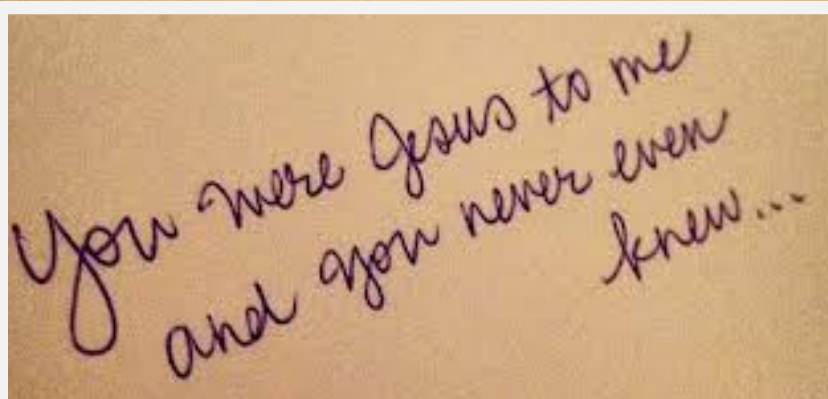 You were Jesus to me
and you never even
knew...